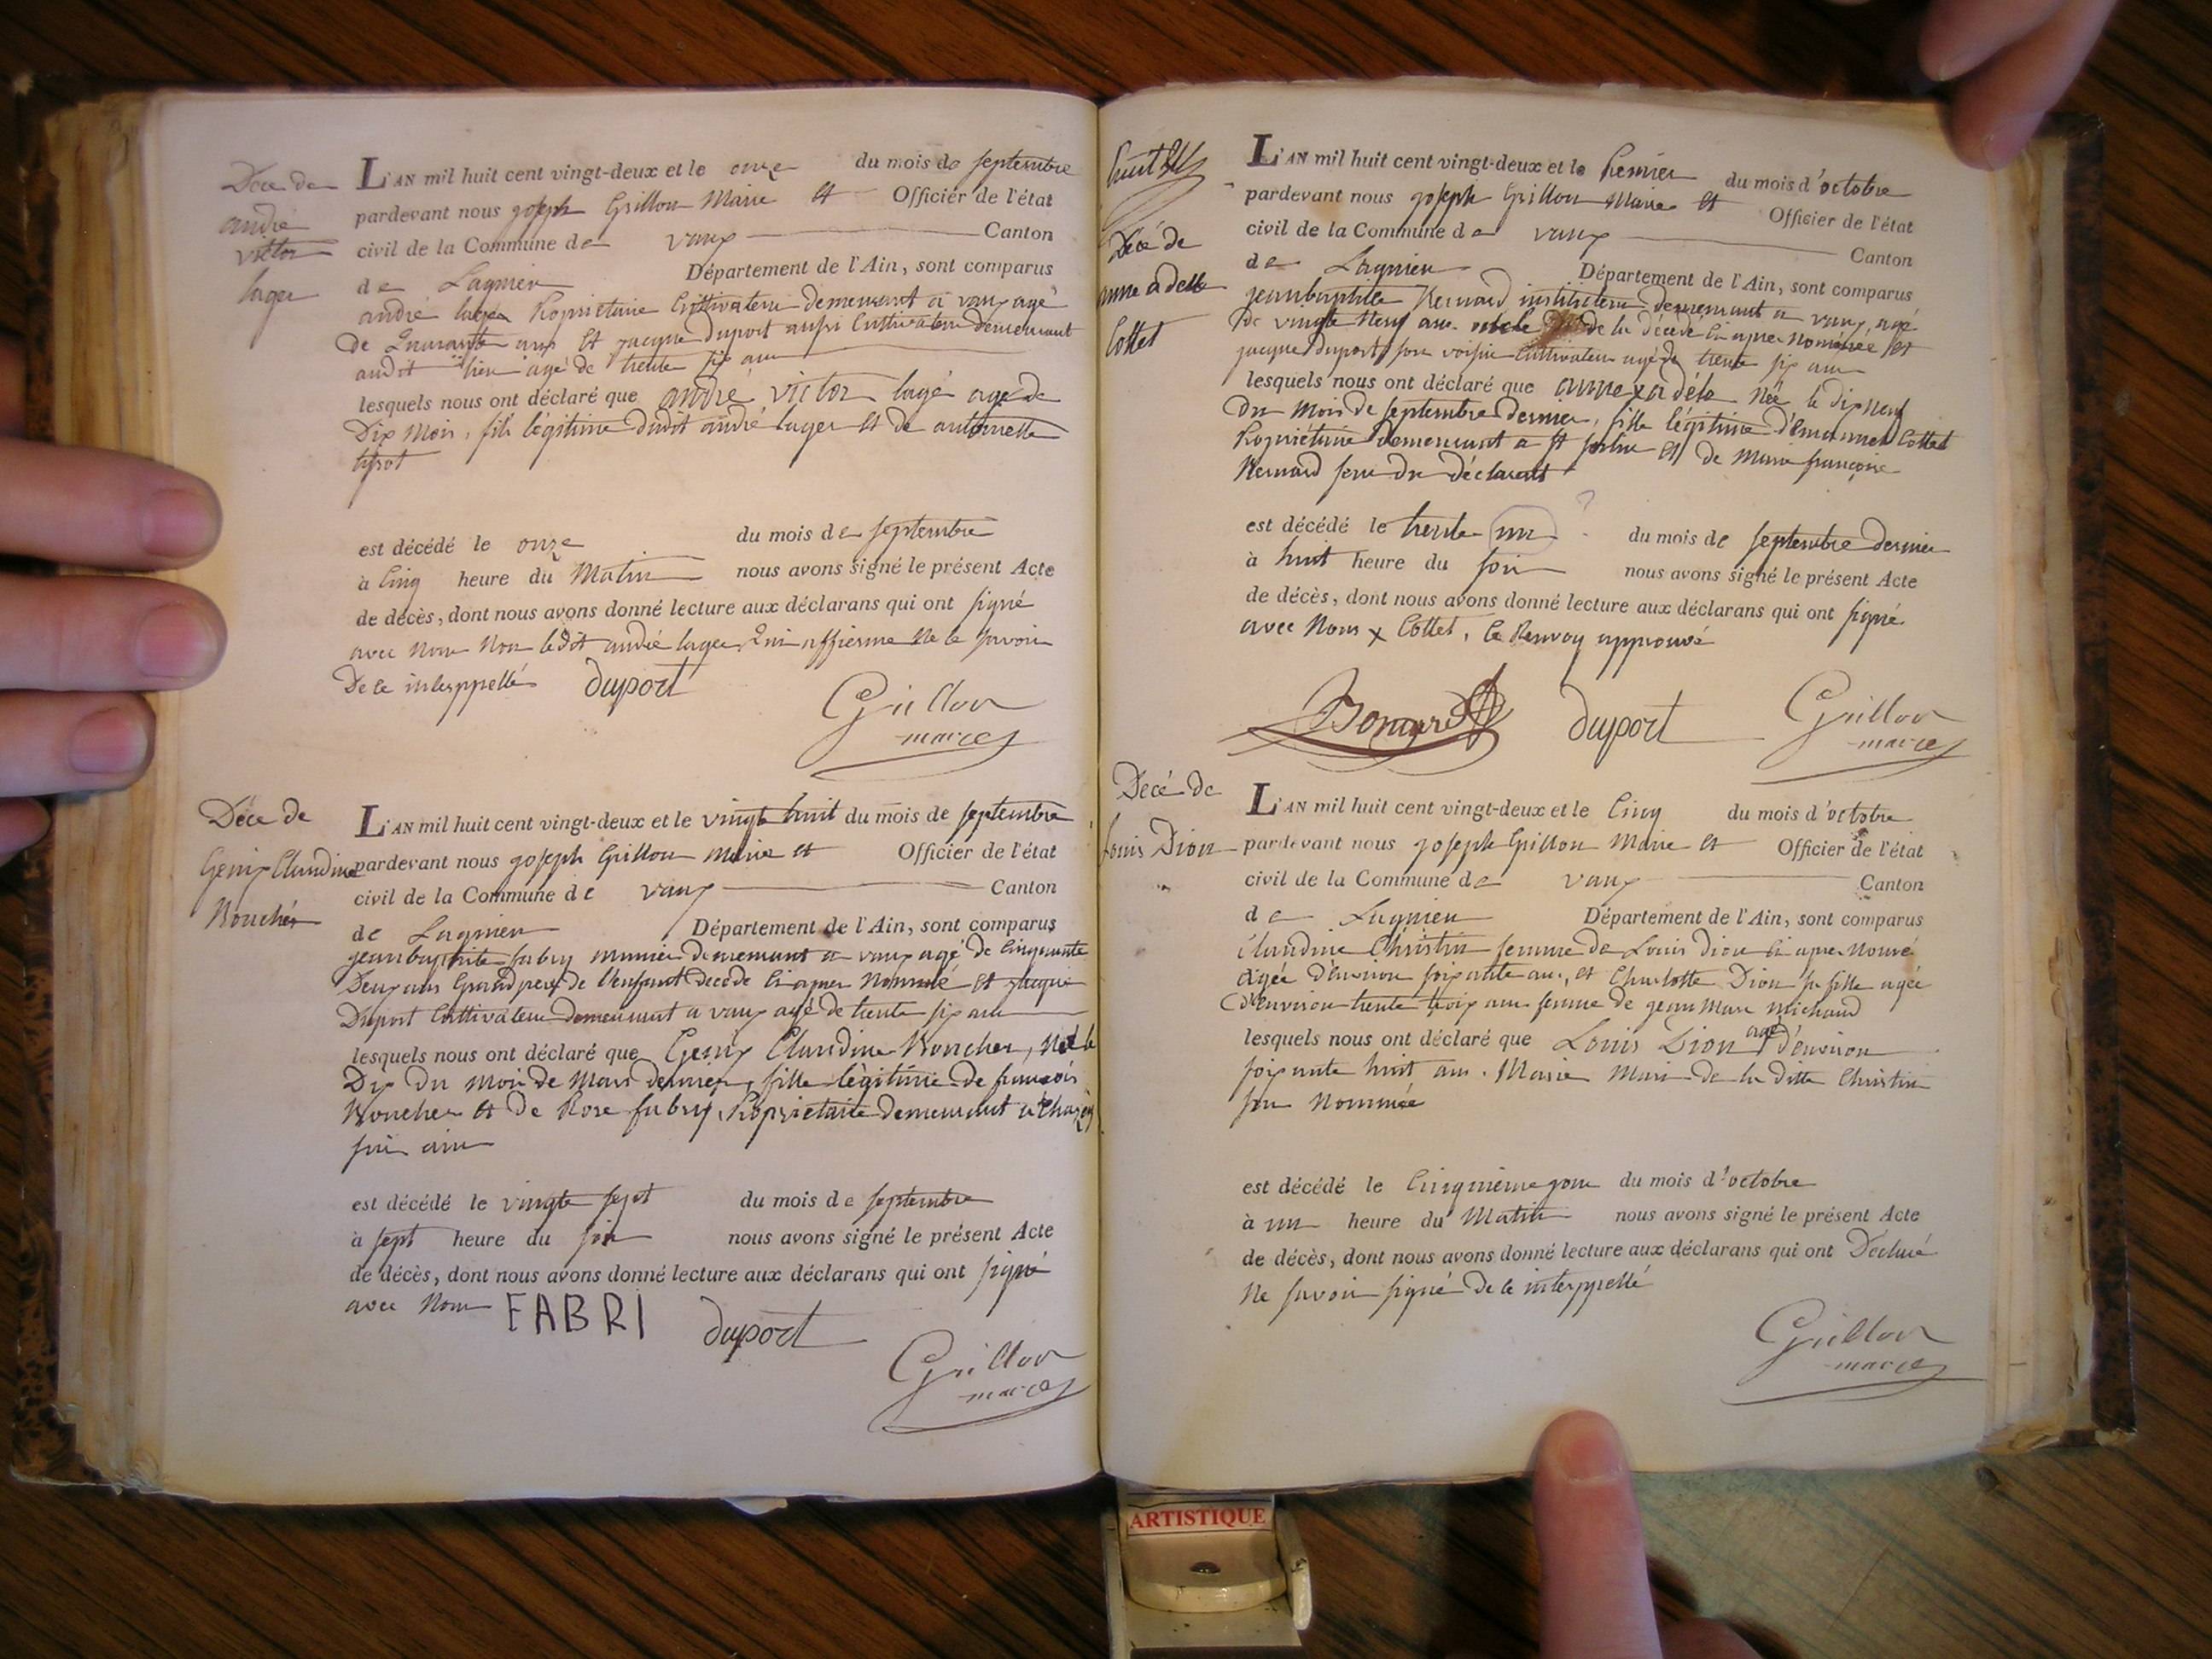 Décè de
andré
victor
lager
L'AN mil huit cent vingt-deux et le onze du mois de septembre
pardevant nous joseph Grillon Maire et Officier de l'état
civil de la Commune de vaux Canton
de Lagnieu Département de l'Ain, sont comparus
andré lager Propriétaire Cultivateur demeurant a vaux agé
de quarante ans et jacque duport aussi Cultivateur demeurant
audit lieu agé de trente six ans
lesquels nous ont déclaré que andré victor lagé agé de
Dix mois, fils légitime dudit andré lager et de antoinette
tissot
est décédé le onze du mois de septembre
à Cinq heure du Matin nous avons signé le présent Acte
de décès, dont nous avons donné lecture aux déclarans qui ont signé
avec nous non ledit andré lager qui affierme ne le savoir
De ce interppellé duport
Grillon
maire
Décè de
Genix Claudine
Boucher
L'AN mil huit cent vingt-deux et le vingt huit du mois de septembre
pardevant nous joseph Grillon maire et Officier de l'état
civil de la Commune de vaux Canton
de Lagnieu Département de l'Ain, sont comparus
jean baptiste fabry demeurant a vaux agé de Cinquante
Deux ans Grand pere de l'enfant décédé Ci apres Nommé et jacque
Duport Cultivateur demeurant a vaux agé de trente six ans
lesquels nous ont déclaré que Genix Claudine Boucher, née le
Dix du mois de Mars dernier, fille légitime de françois
Boucher et de Rose fabry, Propriétaire demeurant a Chazey
sur ain
est décédé le vingte sept du mois de septembre
à sept heure du soir nous avons signé le présent Acte
de décès, dont nous avons donné lecture aux déclarans qui ont signé
avec Nous FABRI duport
Grillon
maire
Décé de
anne adelle
Cottet
L'AN mil huit cent vingt-deux et le Premier du mois d'octobre
pardevant nous joseph Grillon Maire et Officier de l'état
civil de la Commune de vaux Canton
de Lagnieu Département de l'Ain, sont comparus
jean baptiste Bernard instituteur demeurant a vaux agé
de vingte Neuf ans oncle de la décédé Ci apres nommée, et
jacque duport son voisin Cultivateur agé de trente six ans
lesquels nous ont déclaré que anne x adéle née le dix neuf
du mois de septembre dernier, fille légitime d'émanuel Cottet
Propriétaire demeurant a st et de marie françoise
Bernard seur du déclarant
est décédé le trente un ? du mois de septembre dernier
à huit heure du soir nous avons signé le présent Acte
de décès, dont nous avons donné lecture aux déclarans qui ont signé
avec Nous x Cottet, le Renvoy approuvé
Bonard duport Grillon
maire
Décé de
Louis Dion
L'AN mil huit cent vingt-deux et le Cinq du mois d'octobre
pardevant nous joseph Grillon Maire et Officier de l'état
civil de la Commune de vaux Canton
de Lagnieu Département de l'Ain, sont comparus
Claudine Christin femme de Louis dion Ci apres Nommé
agée d'environ soixante ans, et Charlotte Dion sa fille agée
d'environ trente trois ans femme de jean Marc michaud
lesquels nous ont déclaré que Louis Dion agé d'environ
soixante huit ans. Mari de la ditte Christin
sus Nommée
est décédé le Cinquieme jour du mois d'octobre
à un heure du Matin nous avons signé le présent Acte
de décès, dont nous avons donné lecture aux déclarans qui ont Déclaré
Ne savoir signé De ce interppellé
Grillon
maire
ARTISTIQUE